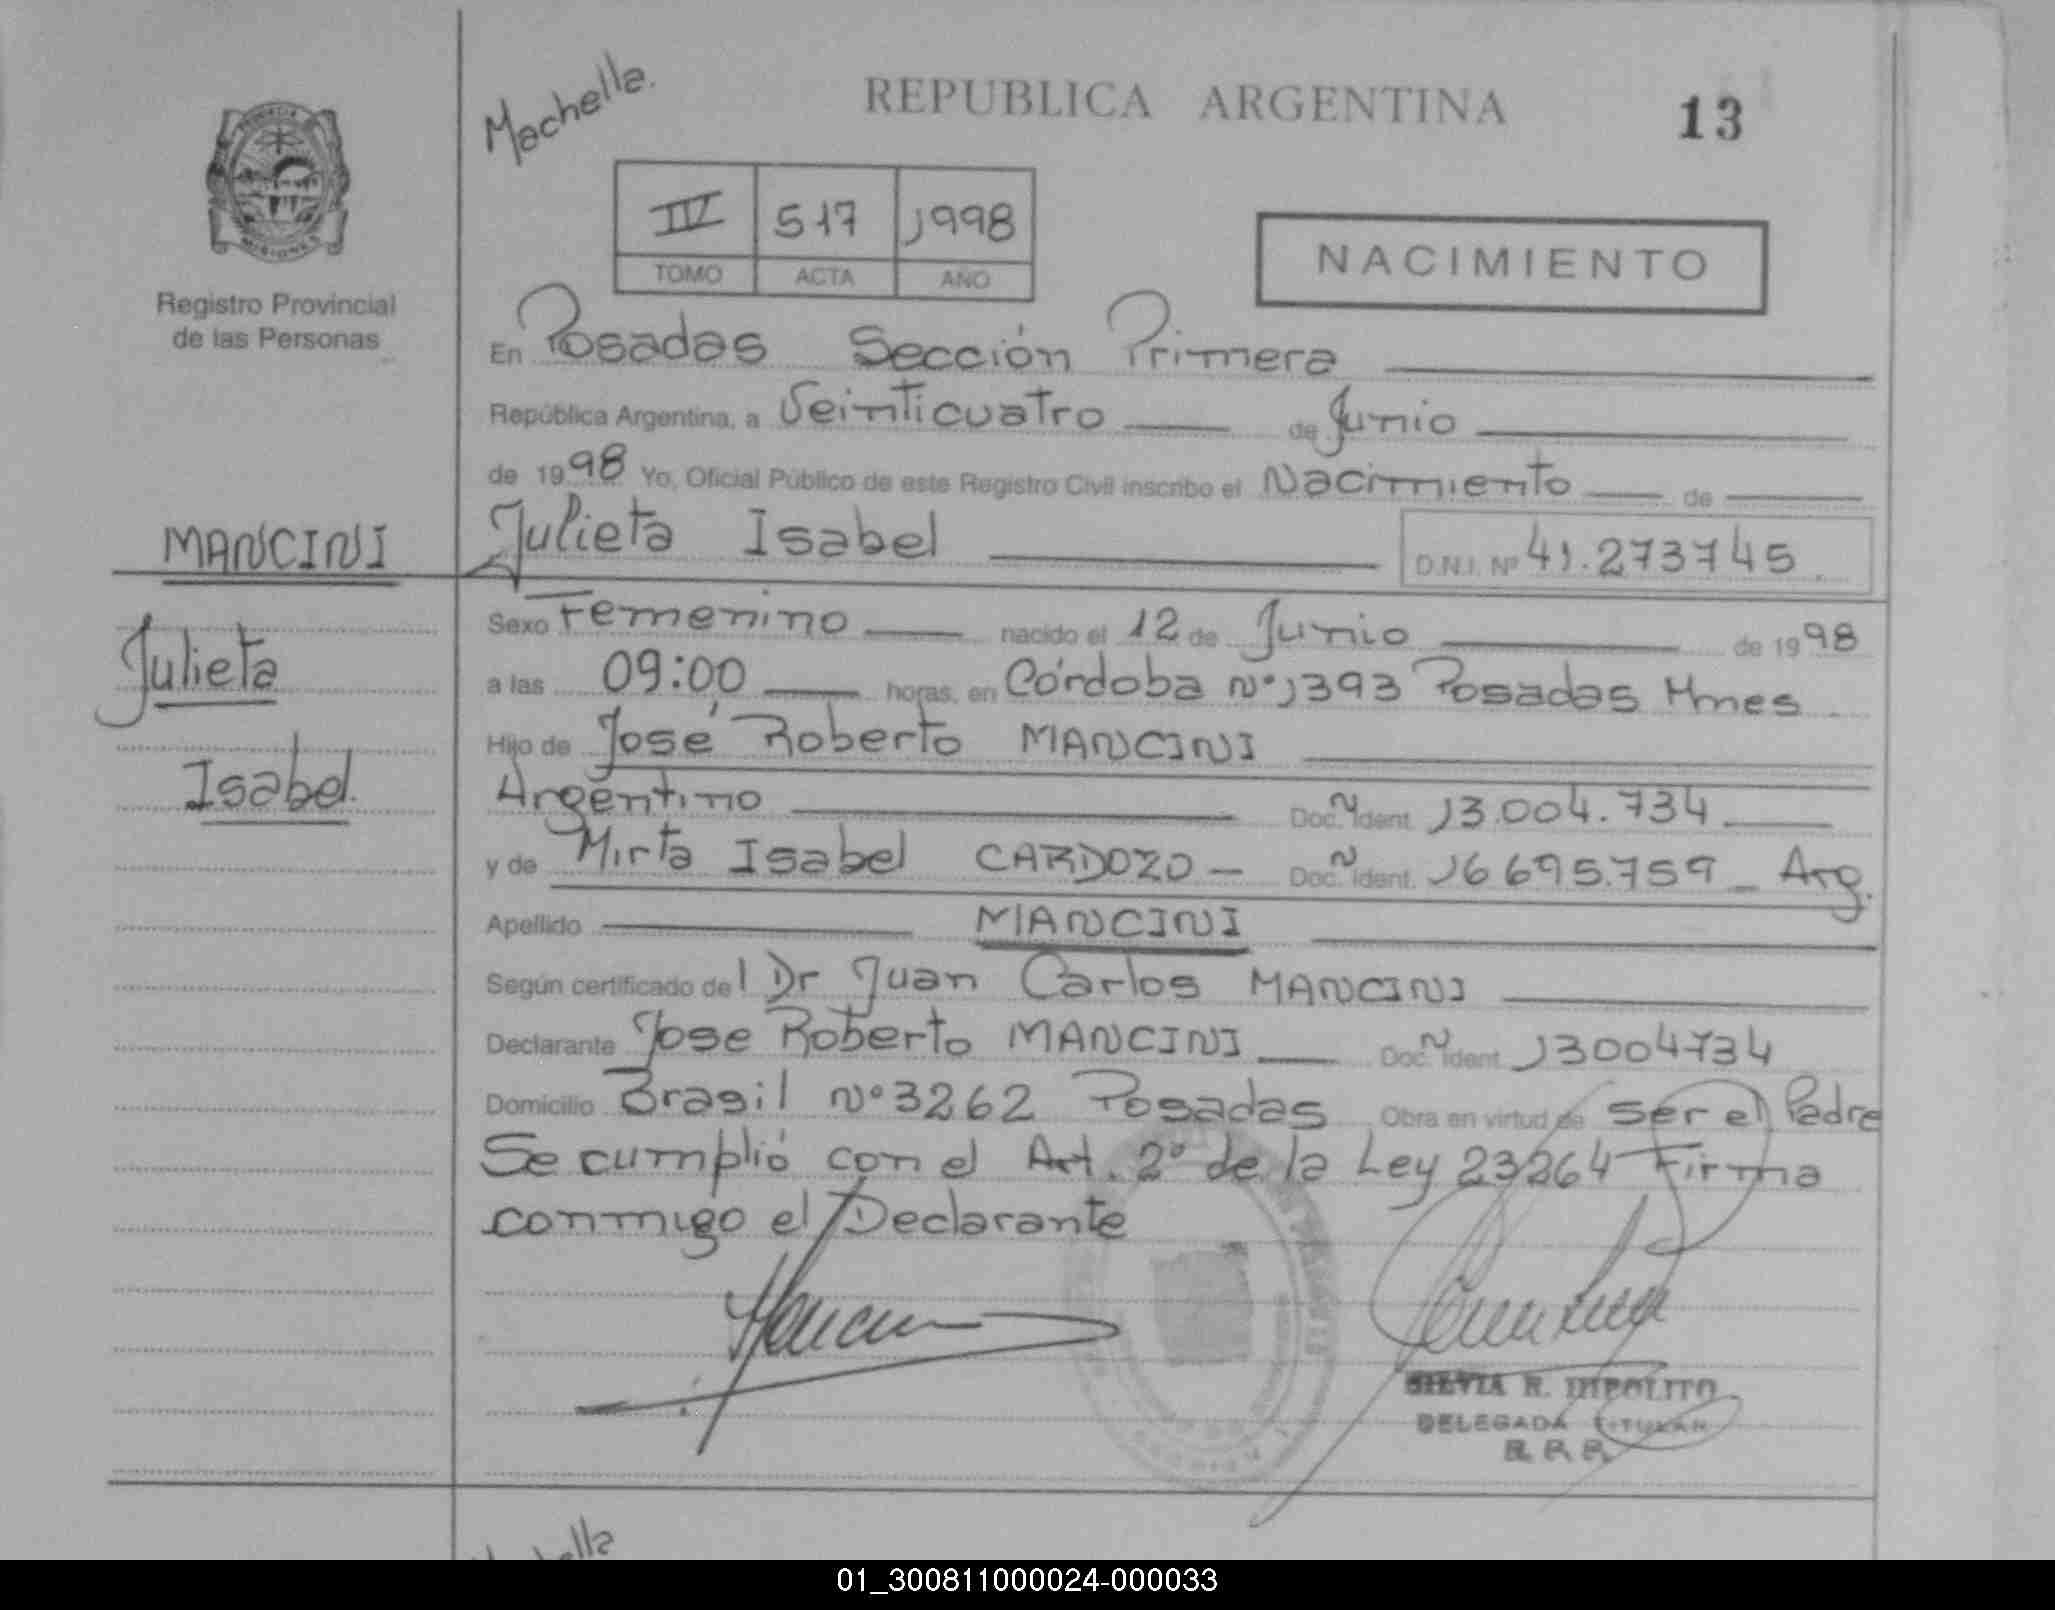 Machella.
REPUBLICA ARGENTINA
13
III 517 1998
TOMO ACTA AÑO
NACIMIENTO
MISIONES
Registro Provincial
de las Personas
En Posadas Sección Primera
República Argentina, a Veinticuatro de Junio
de 1998 Yo, Oficial Público de este Registro Civil inscribo el Nacimiento de
MANCINI
Julieta Isabel
D.N.I. Nº 41.273745
Julieta
Isabel
Sexo Femenino nacido el 12 de Junio de 1998
a las 09:00 horas, en Córdoba Nº 1393 Posadas Mnes
Hijo de José Roberto MANCINI
Argentino Doc. Ident. 13.004.734
y de Mirta Isabel CARDOZO - Doc. Ident. 16695.759 - Arg.
Apellido MANCINI
Según certificado del Dr Juan Carlos MANCINI
Declarante Jose Roberto MANCINI Doc. Ident. 13004734
Domicilio Brasil Nº 3262 Posadas Obra en virtud de ser el Padre
Se cumplió con el Art. 2º de la Ley 23264 Firma
conmigo el Declarante
SILVIA R. HIPOLITO
DELEGADA TITULAR
R. P. P.
01_300811000024-000033